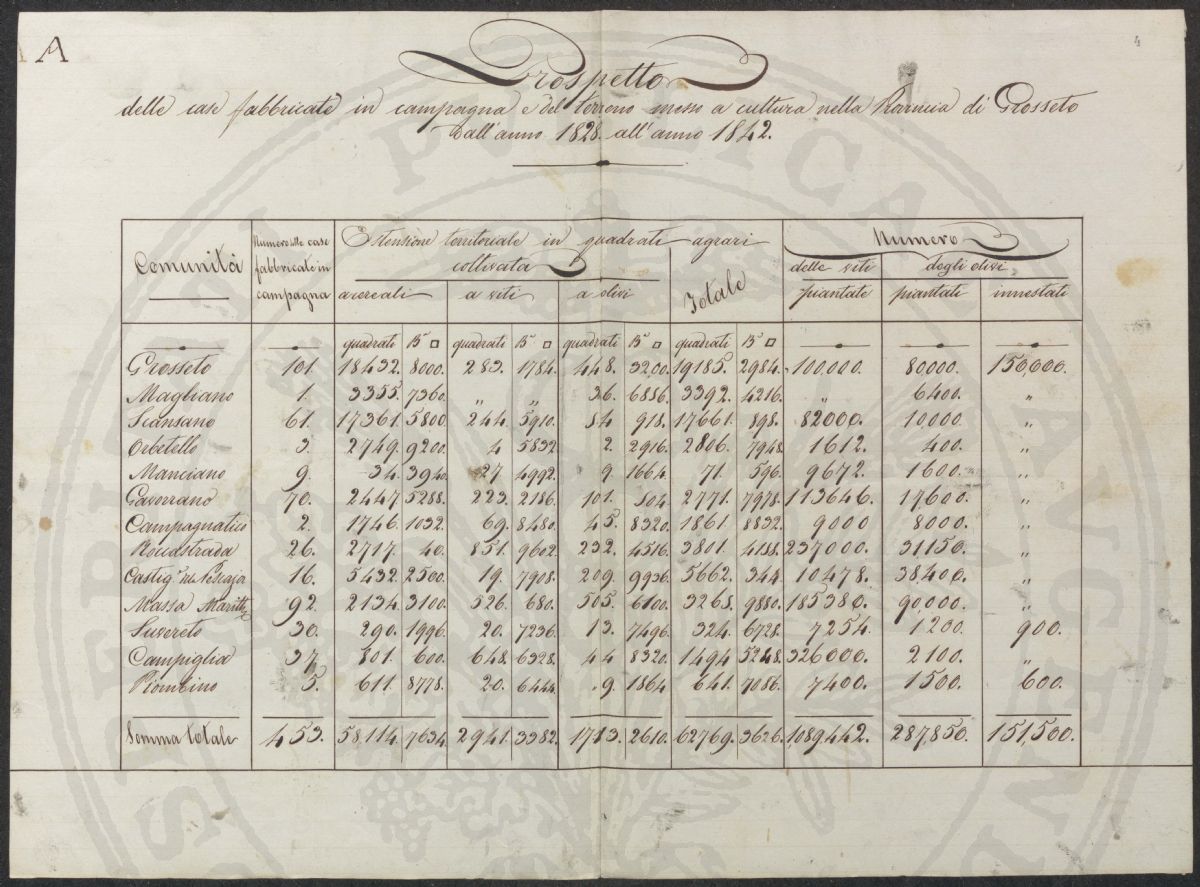 A
4
Prospetto
delle case fabbricate in campagna e del terreno messo a cultura nella Provincia di Grosseto
Dall'anno 1828. all'anno 1842.
Comunità
Numero delle case fabbricate in campagna
Estensione territoriale in quadrati agrari
coltivata
Totale
Numero
delle viti degli olivi
a cereali a viti a olivi piantate piantati innestati
quadrati Bª □ quadrati Bª □ quadrati Bª □ quadrati Bª □
Grosseto 101. 18432. 8000. 283. 1784. 448. 3200. 19185. 2984. 100,000. 80000. 150,000.
Magliano 1. 3355. 7360. „ „ 36. 6856. 3392. 4216. „ 6400. „
Scansano 61. 17361. 5800. 244. 5910. 54 918. 17661. 898. 82000. 10,000. „
Orbetello 3. 2749. 9200. 4 5832 2. 2916. 2806. 7948. 1612. 400. „
Manciano 9. 34. 3940. 27 4992. 9. 1664. 71. 596. 9672. 1600. „
Gavorrano 70. 2447 5288. 223. 2186. 101. 504. 2771. 7978. 113646. 17,600. „
Campagnatico 2. 1746. 1032. 69. 8480. 45. 8320. 1861. 8832. 9000 8000. „
Roccastrada 26. 2717. 40. 851. 9602. 232. 4516. 3801. 4158. 237000. 31150. „
Castig.ne della Pescaja 16. 5432. 2500. 19. 7908. 209. 9936. 5662. 344. 10478. 38,400. „
Massa Maritt. 92. 2134. 3100. 526. 680. 505. 6100. 3265. 9880. 185380. 90,000. „
Suvereto 30. 290. 1996. 20. 7236. 13. 7496. 324. 6728. 7254. 1200. 900.
Campiglia 37. 801. 600. 648. 6328. 44 8320. 1494 5248. 326000. 2100. „
Piombino 5. 611. 8778. 20. 6444. 9. 1864. 641. 7086. 7400. 1500. 600.
Somma totale 453. 58,114. 7634. 2941. 3382. 1713. 2610. 62769. 3626. 1,089442. 287,850. 151,500.